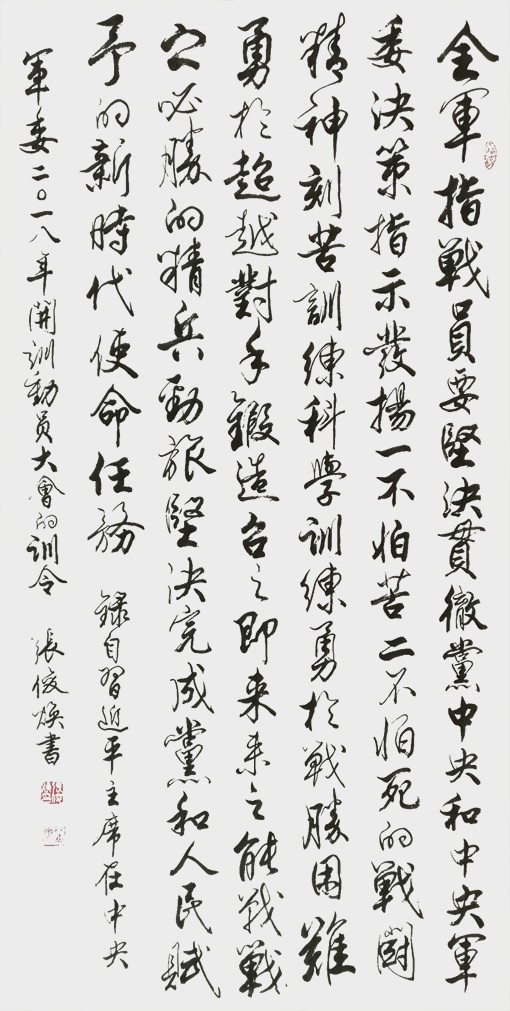 全軍指戰員要堅決貫徹黨中央和中央軍
委決策指示發揚一不怕苦二不怕死的戰鬪
精神刻苦訓練科學訓練勇於戰勝困難
勇於超越對手鍛造召之即来来之能战戰
之必勝的精兵勁旅堅決完成黨和人民賦
予的新時代使命任務 録自習近平主席在中央
軍委二〇一八年開訓動員大會的训令 張俊煥書